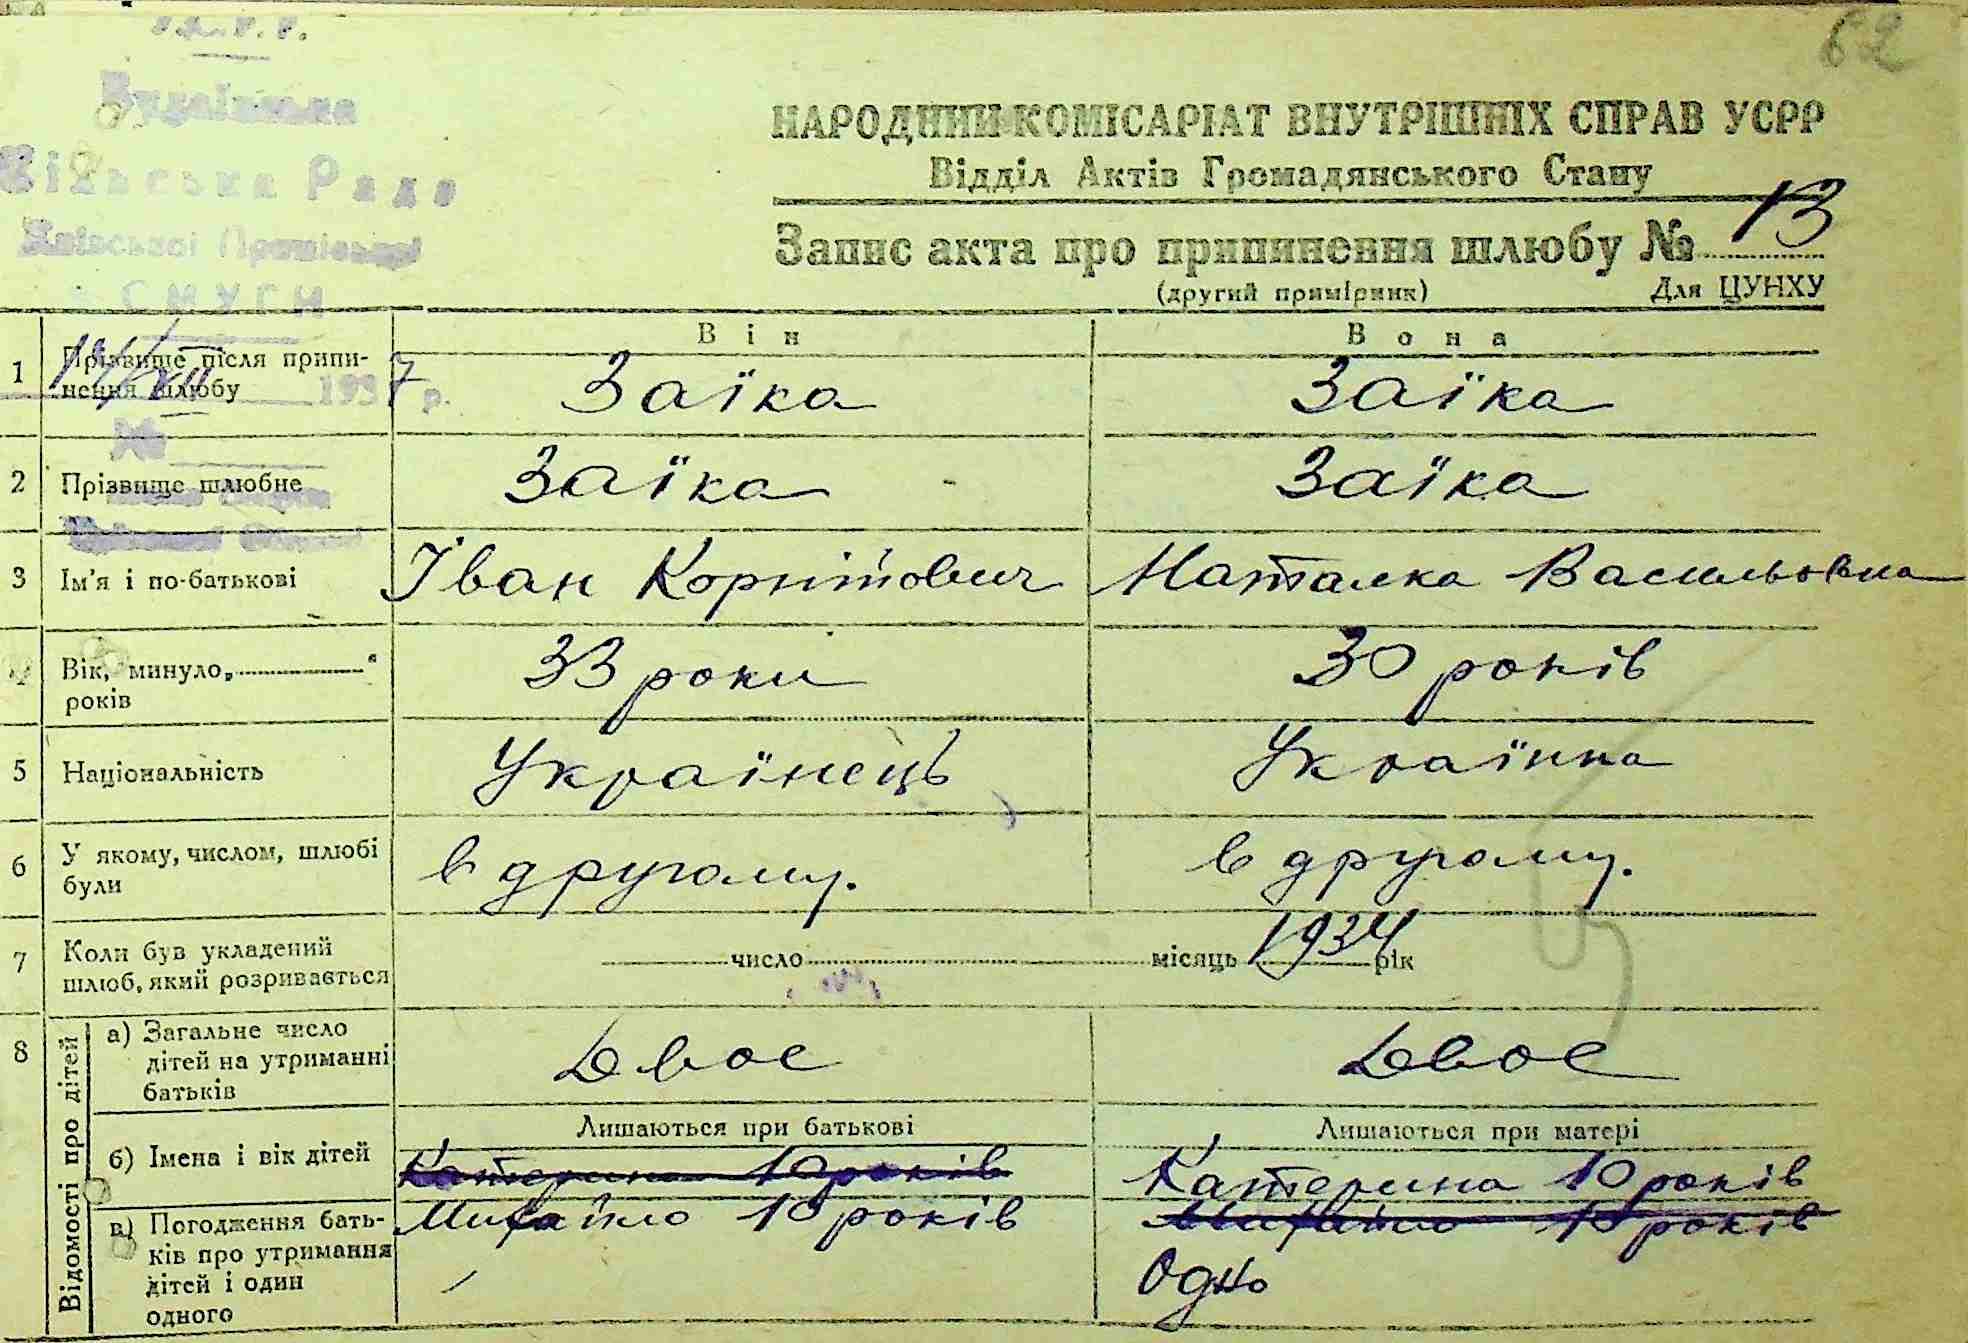 62
Сільська Рада
НАРОДНИЙ КОМІСАРІАТ ВНУТРІШНІХ СПРАВ УСРР
Відділ Актів Громадянського Стану
Запис акта про припинення шлюбу № 13
(другий примірник) Для ЦУНХУ
Він Вона
1 Прізвище після припи-
нення шлюбу Заїка Заїка
1937 р.
№
2 Прізвище шлюбне Заїка Заїка
3 Ім'я і по-батькові Іван Корнійович Наталка Васильовна
Вік, минуло „ “
років 33 роки 30 років
5 Національність Українець Українка
6 У якому, числом, шлюбі
були в другому. в другому.
7 Коли був укладений
шлюб, який розривається число місяць 1934 рік
8 Відомості про дітей
а) Загальне число
дітей на утриманні
батьків Двоє Двоє
Лишаються при батькові Лишаються при матері
б) Імена і вік дітей Катерина 10 років Катерина 10 років
Михайло 10 років Михайло 10 років
в) Погодження бать-
ків про утримання
дітей і один
одного Одно